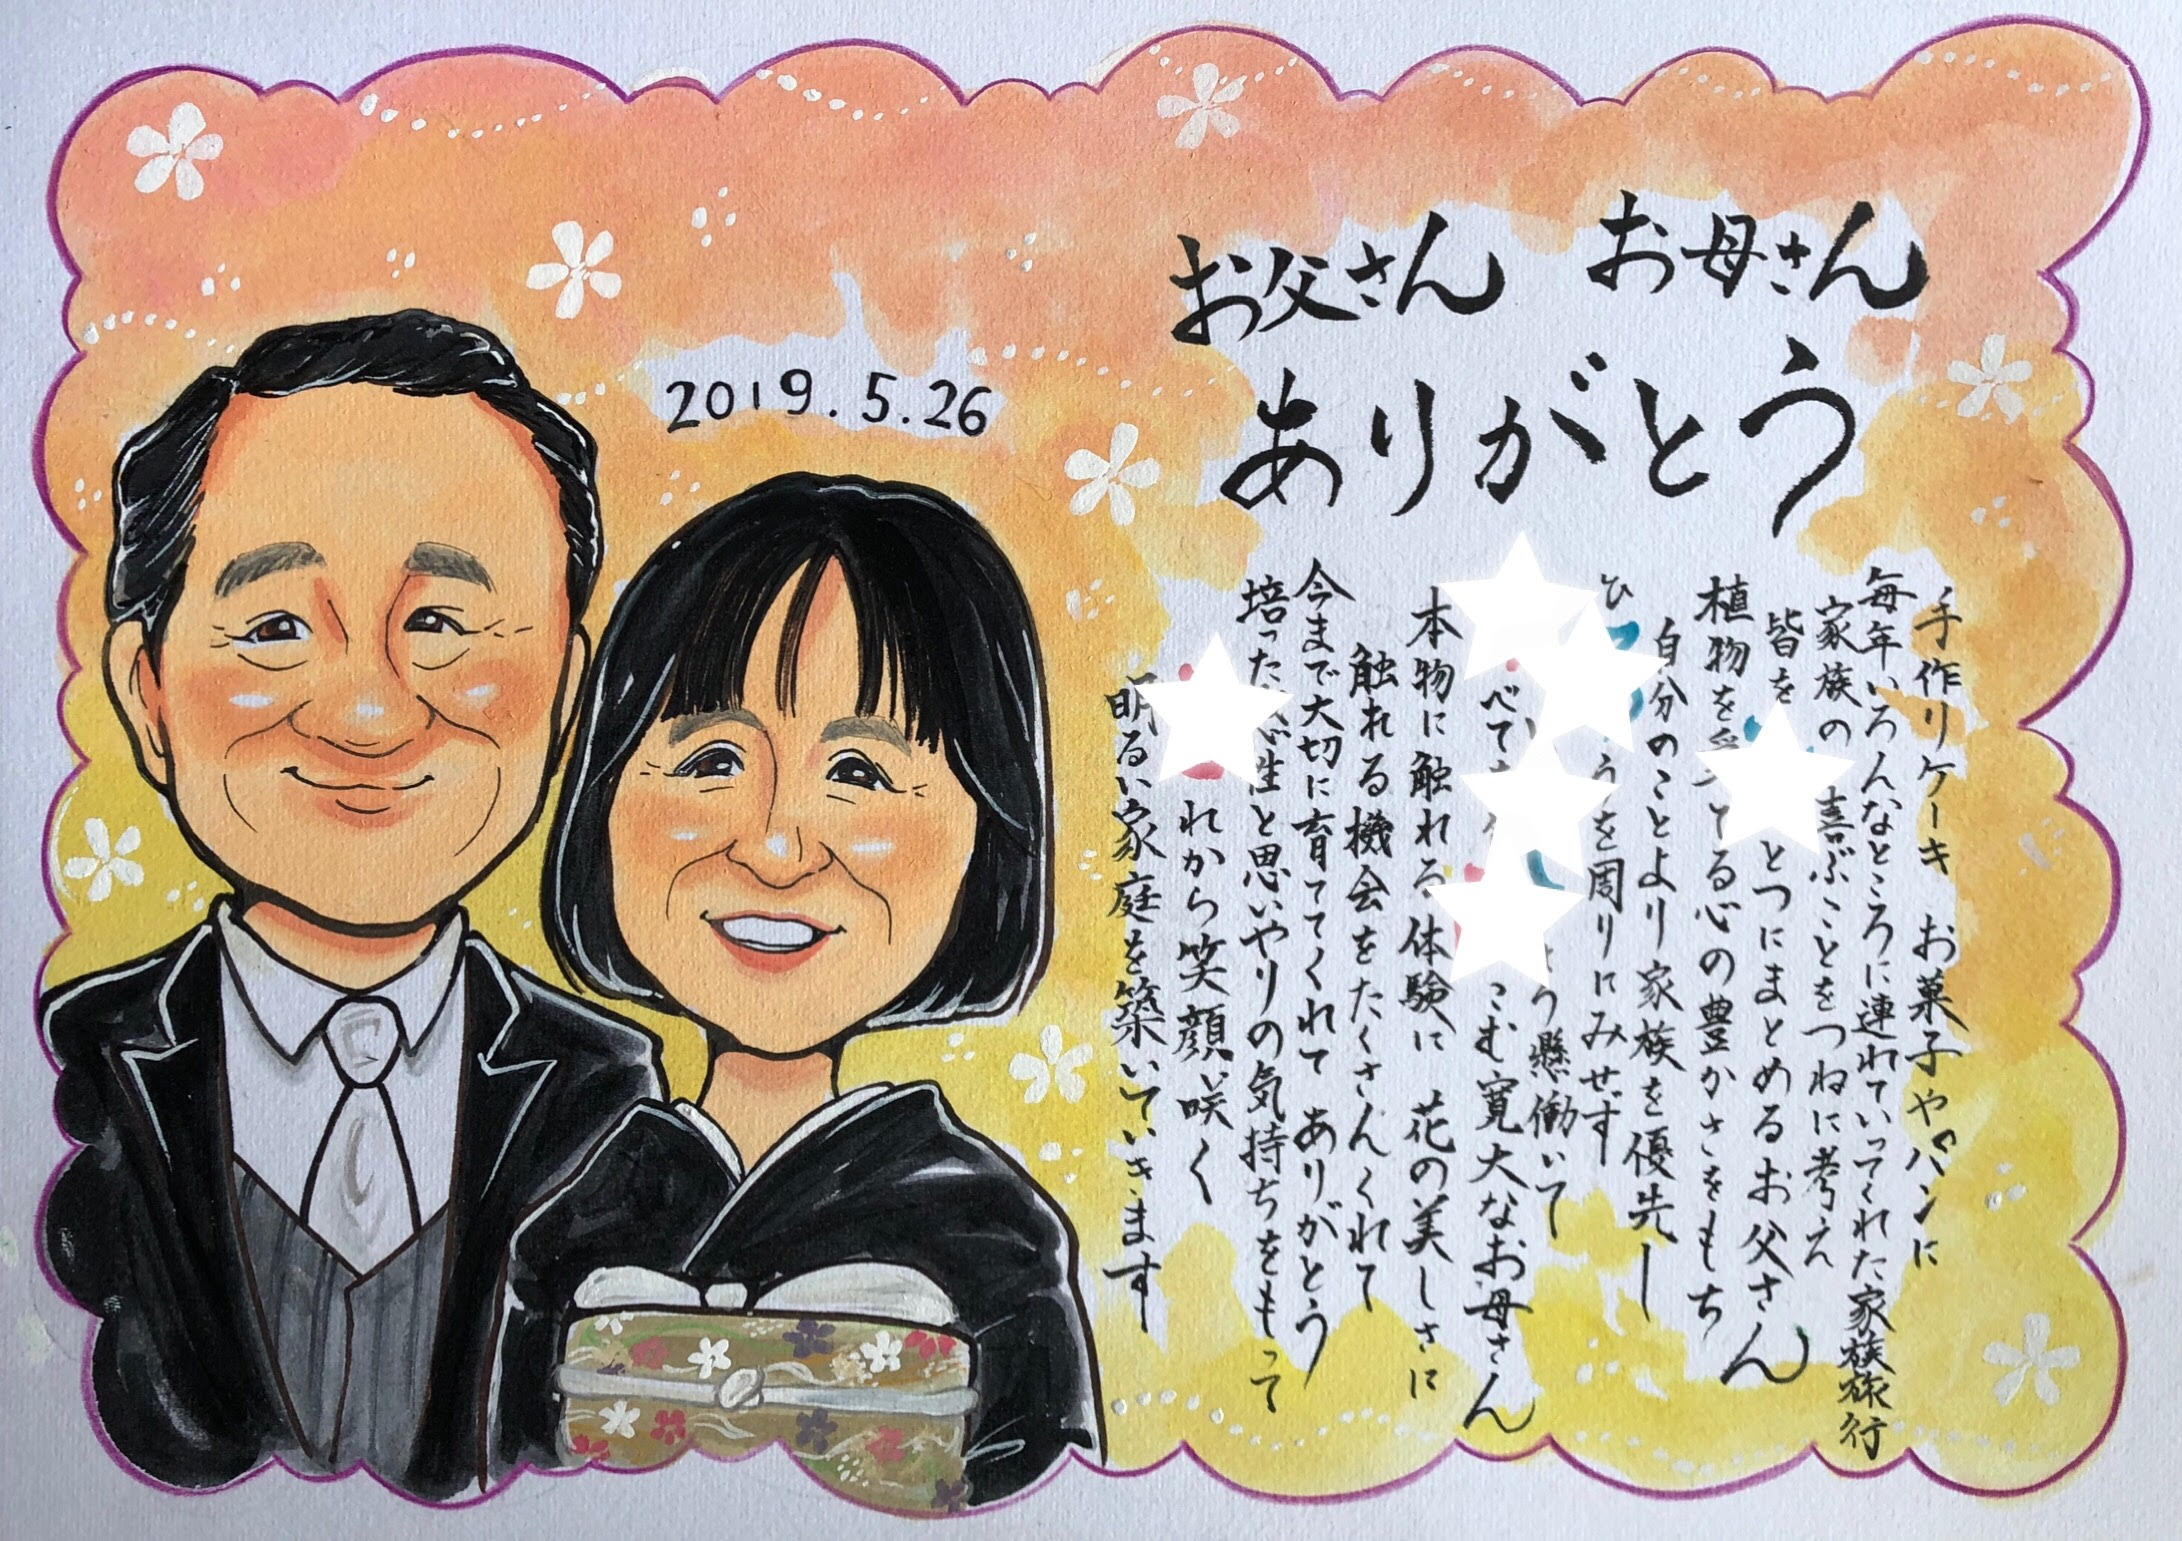 お父さん お母さん
ありがとう
2019.5.26
手作りケーキ お菓子やパンに
毎年いろんなところに連れていってくれた家族旅行
家族の喜ぶことをつねに考え
皆を とつにまとめるお父さん
植物を てる心の豊かさをもち
自分のことより家族を優先し
ひ うを周りにみせず
懸働いて
べて こむ寛大なお母さん
本物に触れる体験に 花の美しさに
触れる機会をたくさんくれて
今まで大切に育ててくれて ありがとう
培った 性と思いやりの気持ちをもって
れから笑顔咲く
明るい家庭を築いていきます